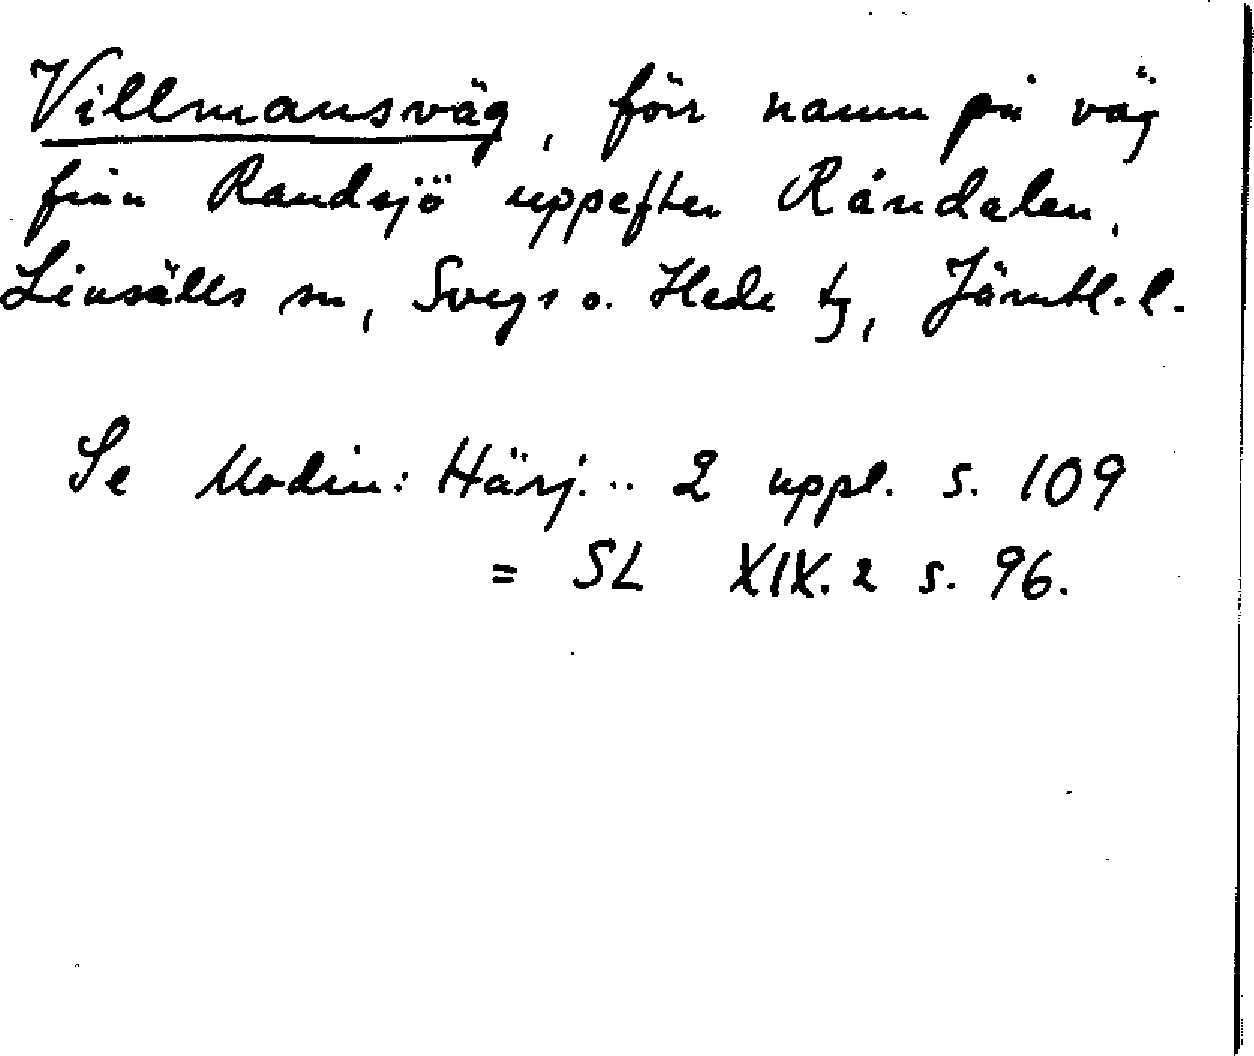 Villmansväg, förr namn på väg
från Randsjö uppefter Råndalen,
Linsälls sn, Svegs o. Hede tg, Jämtl. l.
Se Modin: Härj... 2 uppl. s. 109
= SL XIX. 2 s. 96.